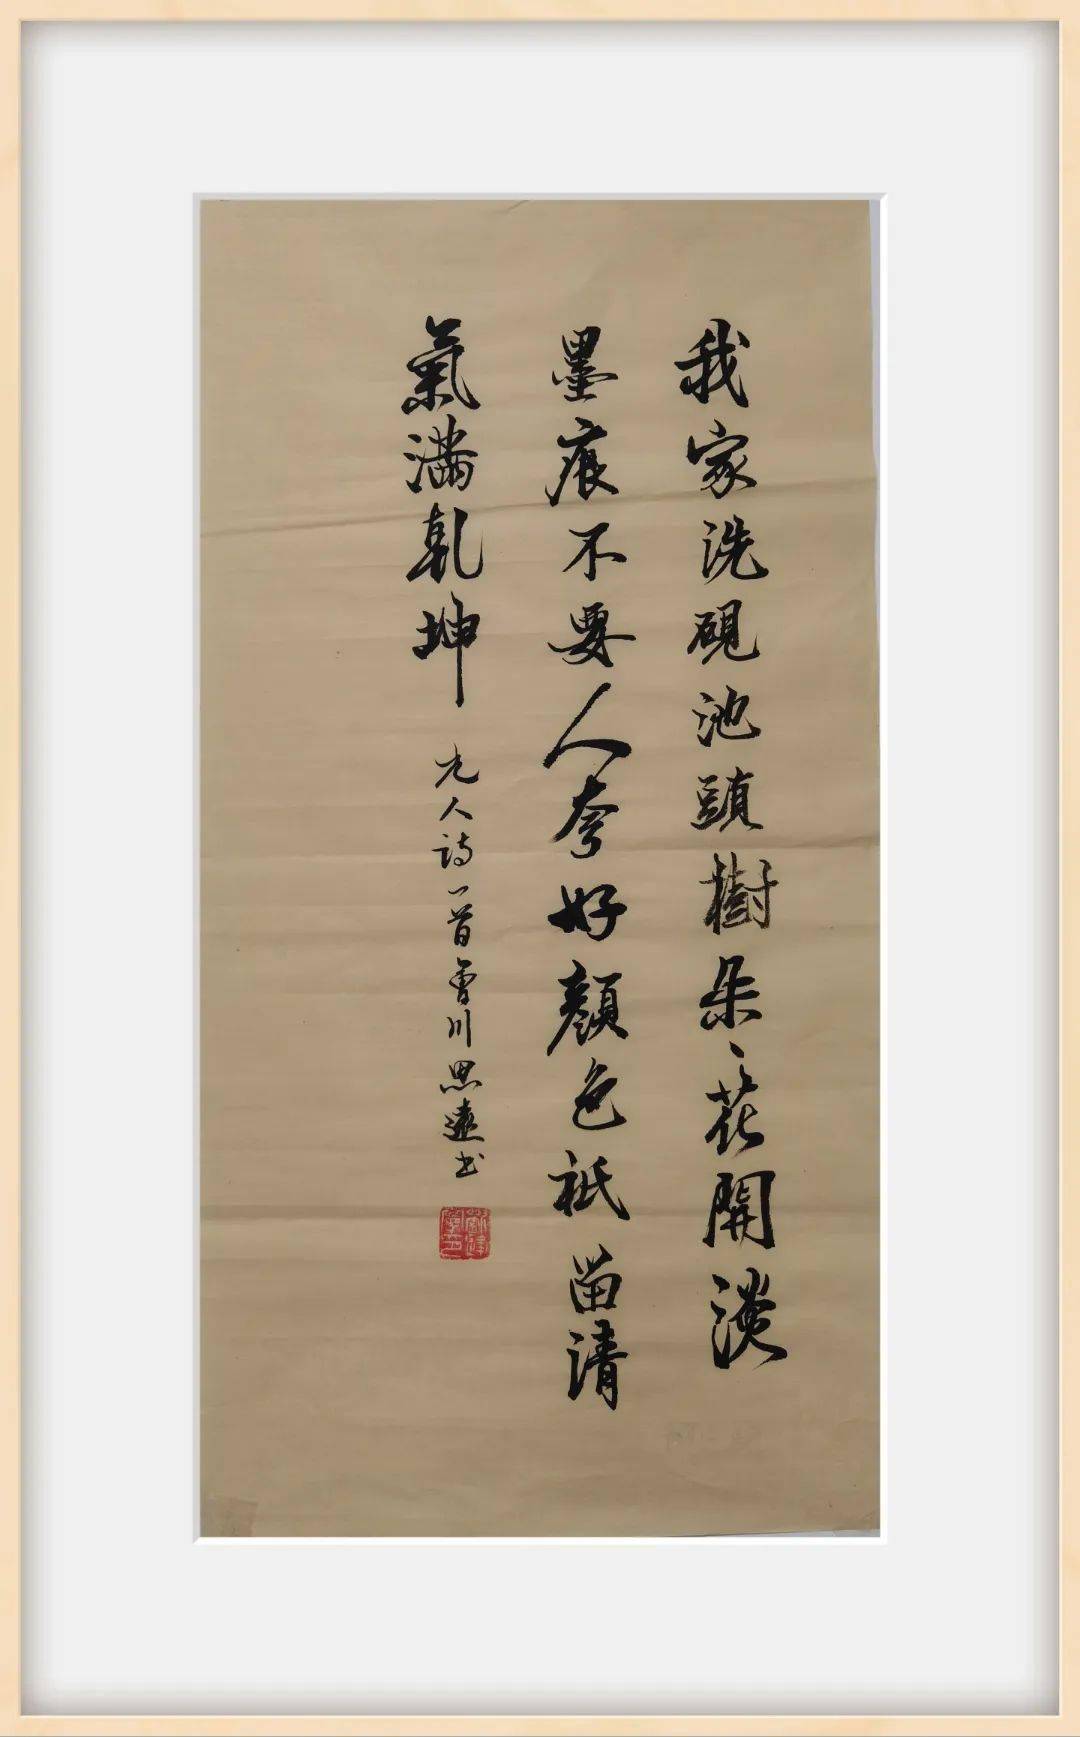 我家洗硯池頭樹朵〻花開淡
墨痕不要人夸好顏色祇留清
氣滿乾坤
元人詩一首川思遠書